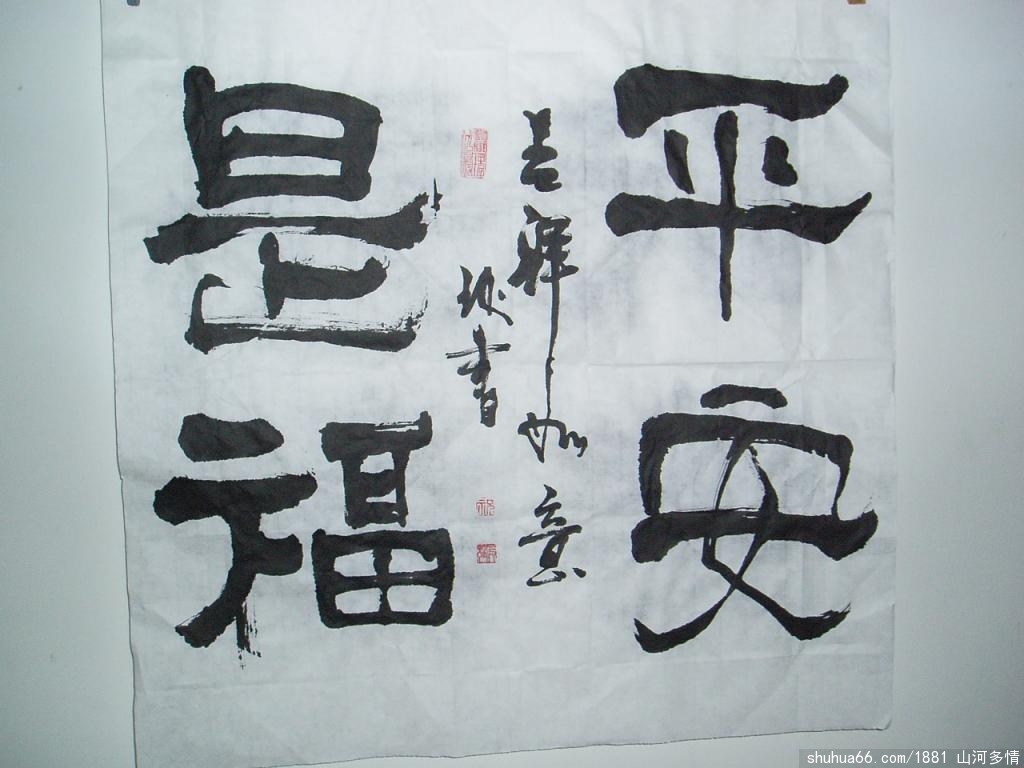 平安
是福
吉祥如意
书
shuhua66.com/1881 山河多情